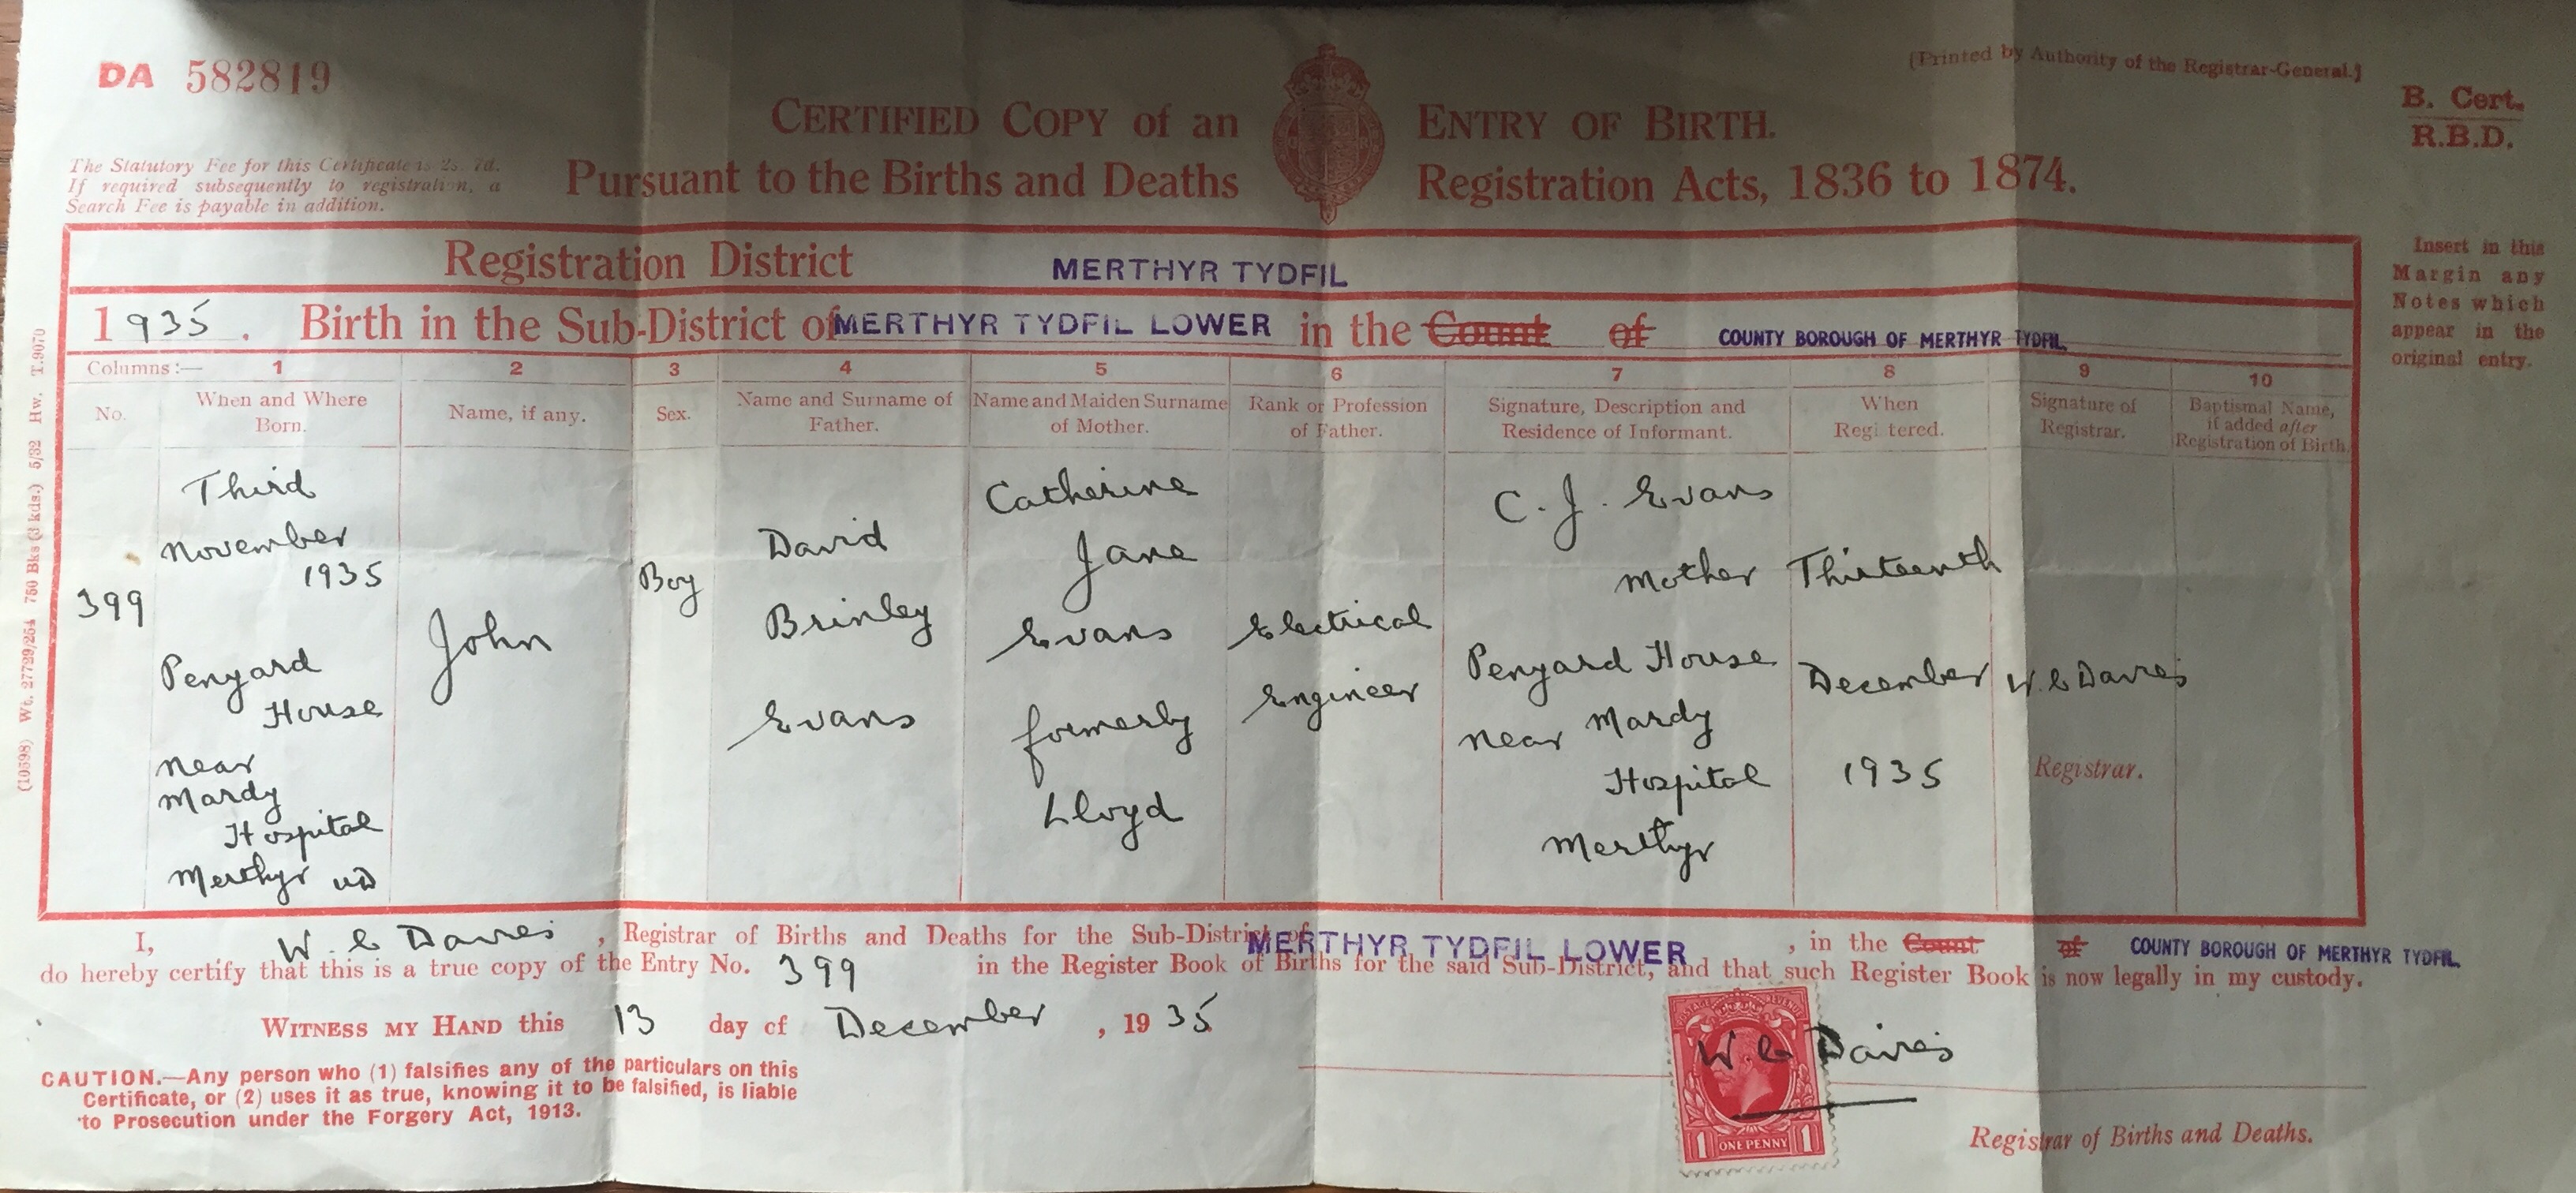 DA 582819
[Printed by Authority of the Registrar-General.]
B. Cert.
R.B.D.
CERTIFIED COPY of an ENTRY OF BIRTH.
Pursuant to the Births and Deaths Registration Acts, 1836 to 1874.
The Statutory Fee for this Certificate is 2s. 7d.
If required subsequently to registration, a
Search Fee is payable in addition.
Insert in this
Margin any
Notes which
appear in the
original entry.
Registration District MERTHYR TYDFIL
1935. Birth in the Sub-District of MERTHYR TYDFIL LOWER in the Count of COUNTY BOROUGH OF MERTHYR TYDFIL
Columns:— 1 2 3 4 5 6 7 8 9 10
No.
When and Where
Born.
Name, if any.
Sex.
Name and Surname of
Father.
Name and Maiden Surname
of Mother.
Rank or Profession
of Father.
Signature, Description and
Residence of Informant.
When
Regi tered.
Signature of
Registrar.
Baptismal Name,
if added after
Registration of Birth.
399
Third
November
1935
Penyard
House
near
Mardy
Hospital
Merthyr UD
John
Boy
David
Brinley
Evans
Catherine
Jane
Evans
formerly
Lloyd
Electrical
Engineer
C. J. Evans
Mother
Penyard House
near Mardy
Hospital
Merthyr
Thirteenth
December
1935
W. C Davies
Registrar.
(10598) Wt. 27729/254 750 Bks (3 kds.) 5/32 Hw. T.9070
I, W. C Davies, Registrar of Births and Deaths for the Sub-District of MERTHYR TYDFIL LOWER, in the Count of COUNTY BOROUGH OF MERTHYR TYDFIL
do hereby certify that this is a true copy of the Entry No. 399 in the Register Book of Births for the said Sub-District, and that such Register Book is now legally in my custody.
WITNESS MY HAND this 13 day of December, 1935
CAUTION.—Any person who (1) falsifies any of the particulars on this
Certificate, or (2) uses it as true, knowing it to be falsified, is liable
to Prosecution under the Forgery Act, 1913.
W C Davies
1 ONE PENNY 1
Registrar of Births and Deaths.